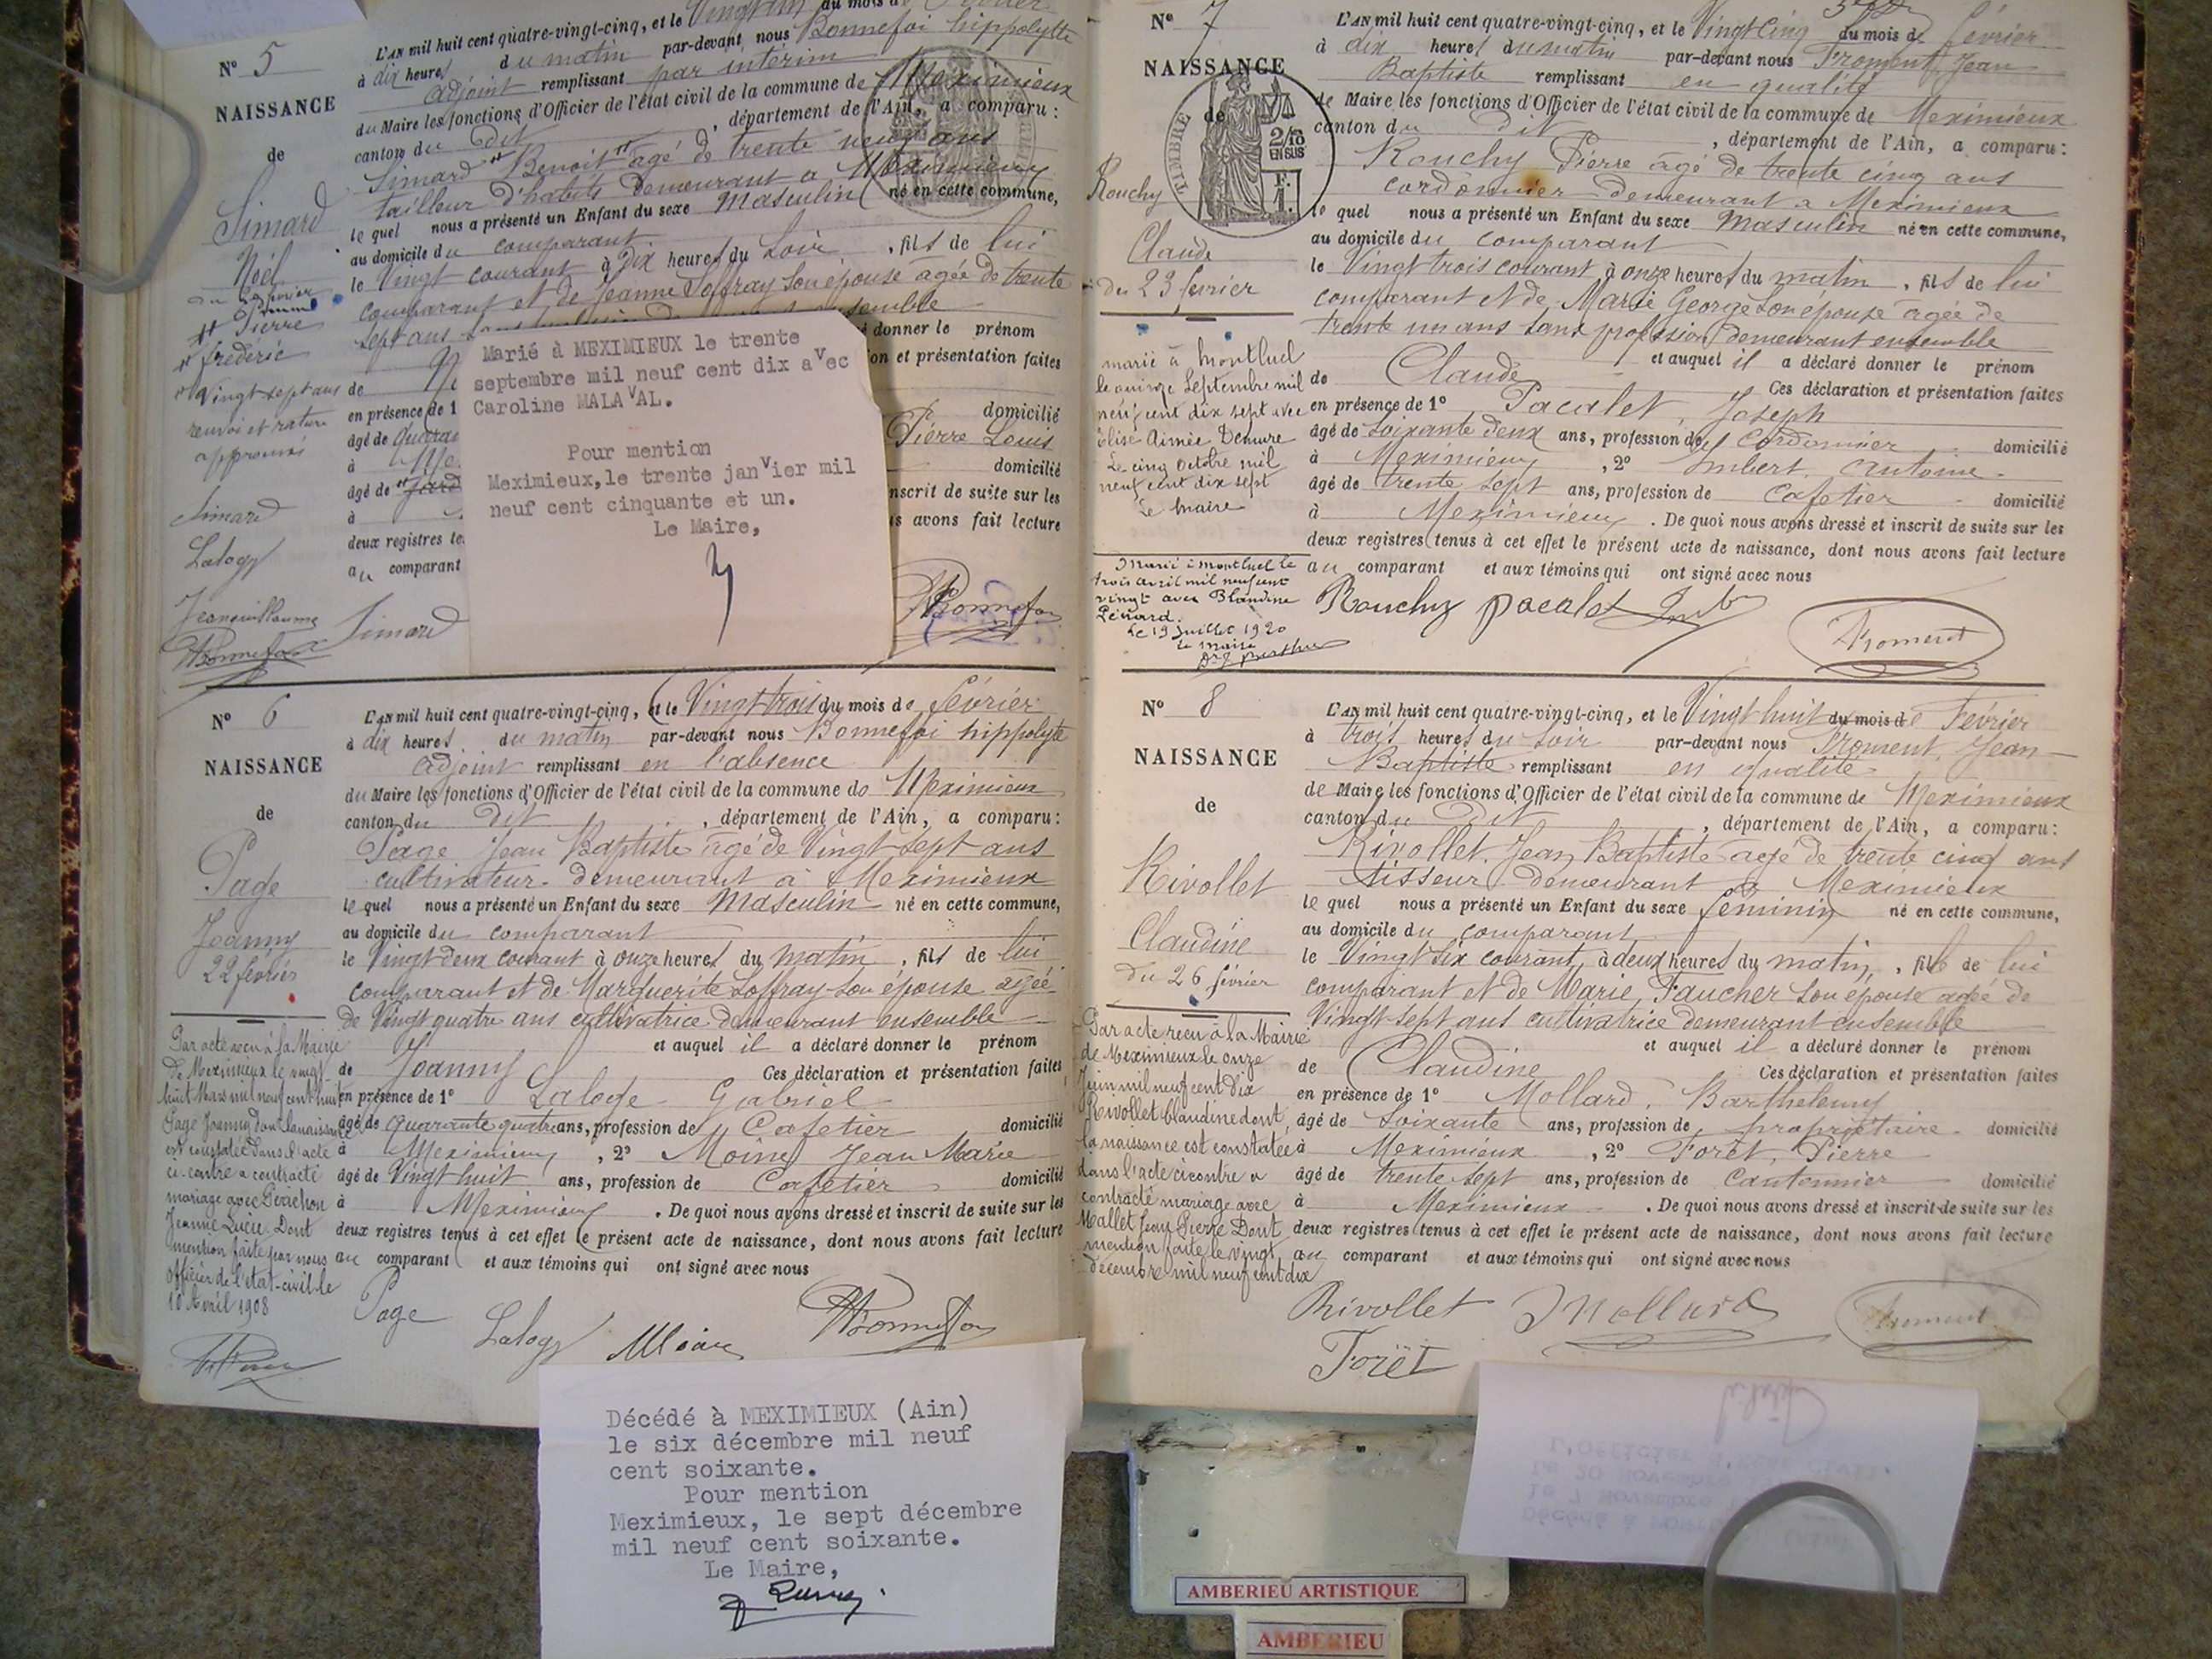 N° 5
NAISSANCE
de
Simard
Noël
Pierre
frédéric
Vingt sept ans
renvoi et rature
approuvés
Simard
Laloge
Jeanguillaume
L'AN mil huit cent quatre-vingt-cinq, et le Vingt un du mois de Février
à dix heures du matin par-devant nous Bonnefoi hippolytte
adjoint remplissant par interim
du Maire les fonctions d'Officier de l'état civil de la commune de Meximieux
canton du dit, département de l'Ain, a comparu:
Simard Benoit agé de trente neuf ans
tailleur d'habits demeurant a Meximieux
le quel nous a présenté un Enfant du sexe Masculin né en cette commune,
au domicile du comparant
le Vingt courant à Dix heures du Soir, fils de lui
comparant et de Jeanne Soffray son épouse agée de trente
sept ans
ensemble
donner le prénom
ion et présentation faites
de
en présence de 1
domicilié
âgé de
Pierre Louis
à
domicilié
âgé de
nscrit de suite sur les
à
s avons fait lecture
deux registres te
au comparant
Simard
Bonnefoi
Marié à MEXIMIEUX le trente
septembre mil neuf cent dix avec
Caroline MALAVAL.
Pour mention
Meximieux, le trente janvier mil
neuf cent cinquante et un.
Le Maire,
N° 6
NAISSANCE
de
Page
Joanny
22 février
Par acte reçu à la Mairie
de Meximieux le vingt
huit Mars mil neuf cent huit
Page Joanny dont la naissance
est constatée dans l'acte
ci-contre a contracté
mariage avec Périchon
Jeanne Lucie. Dont
mention faite par nous
officier de l'état-civil le
10 Avril 1908
L'AN mil huit cent quatre-vingt-cinq, et le Vingt trois du mois de Février
à dix heures du matin par-devant nous Bonnefoi hippolyte
adjoint remplissant en l'absence
du Maire les fonctions d'Officier de l'état civil de la commune de Meximieux
canton du dit, département de l'Ain, a comparu:
Page Jean Baptiste agé de Vingt sept ans
cultivateur demeurant à Meximieux
le quel nous a présenté un Enfant du sexe Masculin né en cette commune,
au domicile du comparant
le Vingt-deux courant à onze heures du matin, fils de lui
comparant et de Marguerite Soffray son épouse agée
de Vingt quatre ans cultivatrice demeurant ensemble
et auquel il a déclaré donner le prénom
de Joanny Ces déclaration et présentation faites
en présence de 1° Laloge Gabriel
âgé de quarante quatre ans, profession de Cafetier domicilié
à Meximieux, 2° Moine Jean Marie
âgé de Vingt huit ans, profession de Cafetier domicilié
à Meximieux. De quoi nous avons dressé et inscrit de suite sur les
deux registres tenus à cet effet le présent acte de naissance, dont nous avons fait lecture
au comparant et aux témoins qui ont signé avec nous
Page Laloge Moine Bonnefoi
Décédé à MEXIMIEUX (Ain)
le six décembre mil neuf
cent soixante.
Pour mention
Meximieux, le sept décembre
mil neuf cent soixante.
Le Maire,
N° 7
NAISSANCE
de
TIMBRE
2/10
EN SUS
Rouchy
Claude
du 23 février
marié à Montluel
le quinze Septembre mil
neuf cent dix sept avec
Elise Aimée Demure
Le cinq Octobre mil
neuf cent dix sept
Le Maire
Marié à Montluel le
trois avril mil neuf cent
vingt avec Blandine
Pénard.
Le 19 Juillet 1920
le Maire
L'AN mil huit cent quatre-vingt-cinq, et le Vingt Cinq du mois de Février
à dix heures du matin par-devant nous Froment Jean
Baptiste remplissant en qualité
de Maire les fonctions d'Officier de l'état civil de la commune de Meximieux
canton du dit, département de l'Ain, a comparu:
Rouchy Pierre âgé de trente cinq ans
cordonnier demeurant a Meximieux
le quel nous a présenté un Enfant du sexe Masculin né en cette commune,
au domicile du comparant
le Vingt trois courant, à onze heures du matin, fils de lui
comparant et de Marie George son épouse agée de
trente un ans sans profession demeurant ensemble
et auquel il a déclaré donner le prénom
de Claude Ces déclaration et présentation faites
en présence de 1° Pacalet Joseph
âgé de Soixante deux ans, profession de Cordonnier domicilié
à Meximieux, 2° Imbert Antoine
âgé de trente sept ans, profession de Cafetier domicilié
à Meximieux. De quoi nous avons dressé et inscrit de suite sur les
deux registres tenus à cet effet le présent acte de naissance, dont nous avons fait lecture
au comparant et aux témoins qui ont signé avec nous
Rouchy pacalet
Froment
N° 8
NAISSANCE
de
Rivollet
Claudine
du 26 février
Par acte reçu à la Mairie
de Meximieux le onze
Juin mil neuf cent dix
Rivollet Claudine dont
la naissance est constatée
dans l'acte ci contre a
contracté mariage avec
Mallet Jean Pierre Dont
mention faite le vingt
décembre mil neuf cent dix
L'AN mil huit cent quatre-vingt-cinq, et le Vingt huit du mois de Février
à trois heures du Soir par-devant nous Froment, Jean
Baptiste remplissant en qualité
de Maire les fonctions d'Officier de l'état civil de la commune de Meximieux
canton du dit, département de l'Ain, a comparu:
Rivollet, Jean Baptiste agé de trente cinq ans
tisseur demeurant a Meximieux
le quel nous a présenté un Enfant du sexe féminin né en cette commune,
au domicile du comparant
le Vingt six courant, à deux heures du matin, fille de lui
comparant et de Marie Faucher son épouse agée de
Vingt sept ans cultivatrice demeurant ensemble
et auquel il a déclaré donner le prénom
de Claudine Ces déclaration et présentation faites
en présence de 1° Mollard, Barthelemy
âgé de Soixante ans, profession de propriétaire domicilié
à Meximieux, 2° Forêt, Pierre
âgé de trente sept ans, profession de Cantonnier domicilié
à Meximieux. De quoi nous avons dressé et inscrit de suite sur les
deux registres tenus à cet effet le présent acte de naissance, dont nous avons fait lecture
au comparant et aux témoins qui ont signé avec nous
Rivollet Mollard Froment
Forët
AMBERIEU ARTISTIQUE
AMBERIEU